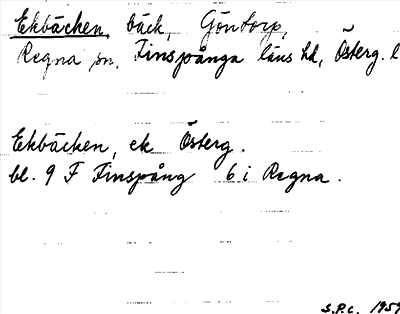 Ekbäcken, bäck, Göntorp,
Regna sn, Finspånga läns hd, Österg. l
Ekbäcken, ek Österg.
bl. 9 F Finspång 6 i Regna.
S.P.C. 1959